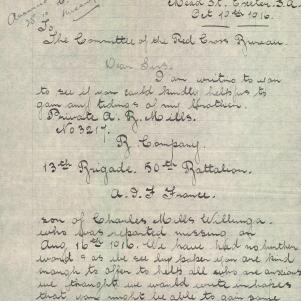 Mead St. Exeter. S.A.
Oct 19th 1916.
To
The Committee of the Red Cross Bureau.
Dear Sirs.
I am writing to you
to see if you could kindly help us to
gain any tidings of my brother.
Private A. R. Mills.
No 3217.
B Company.
13th Brigade. 50th Battalion.
A. I. F. France.
son of Charles Mills Willunga.
who was reported missing on
Aug 16th 1916. We have had no further
word & as we see by paper you are kind
enough to offer to help all who are anxious
we thought we would write in hopes
that you might be able to gain some